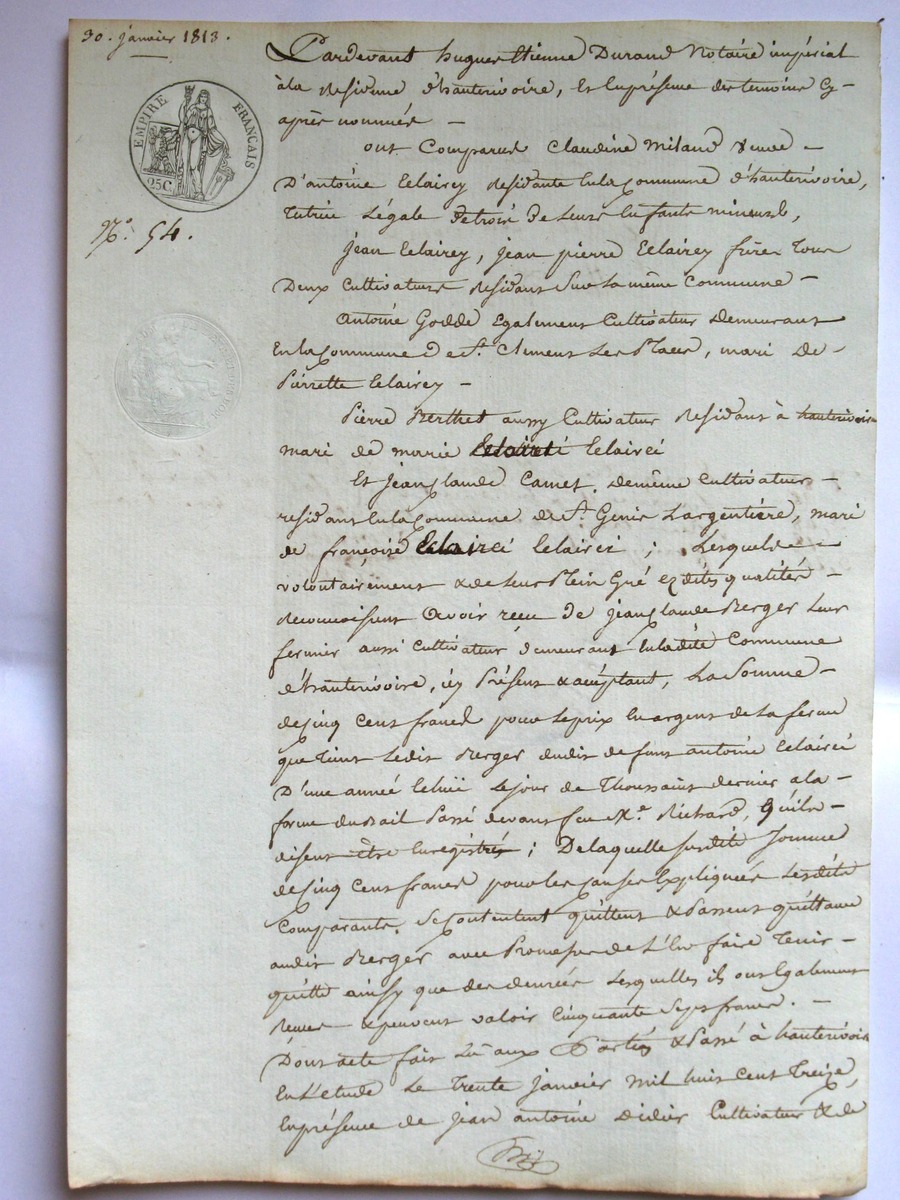 30. janvier 1813.
EMPIRE FRANÇAIS
25C
N.o 54.
Pardevant hugues Etienne Durand Notaire impérial
à la Residence d'hauterivoire, et en présence des temoins cy-
après nommés –
ont Comparus Claudine Miland veuve –
D'antoine Eclairey residante en la Commune d'hauterivoire,
tutrice Légale de trois de leurs Enfants mineurs,
jean Eclairey, jean pierre Eclairey frères tous
Deux Cultivateurs residants sur la même Commune –
Antoine Godde Egalement Cultivateur Demeurant
En la Commune De St. Clement Les Places, mari De –
Pierrette Eclairey –
Pierre Berthet aussy Cultivateur residant à hauterivoire
mari de marie Eclairci
Et jeanclaude Camet, demême Cultivateur –
residant en la Commune de St. Genis Largentière, mari
de françoise Eclairci ; Lesquels –
volontairement & de Leur Plein Gré ez dites qualités –
Reconnoissent avoir recu De jeanclaude Berger leur
fermier aussi Cultivateur demeurant en la dite Commune
d'hauterivoire, icy Présent & acceptant, La Somme –
de Cinq Cent francs pour le prix en argent de la ferme
que tient Ledit Berger dudit defunt antoine Eclairci
D'une année Echüe le jour de Thoussaint dernier a la –
forme du Bail Passé devant feu Me. Richard, qu'ils –
disent être Enregistrés ; De laquelle susdite Somme
de Cinq Cent francs pour les causes Expliquées Lesdits
Comparants, Se Contentent quittent & Passent quittance
audit Berger avec Promesse de L'En faire Tenir –
quitte ainsy que des denrées Lesquelles ils ont Egalement
Recues & peuvent valoir Cinquante Sept francs. –
Dont acte fait Lu aux Parties & Passé à hauterivoire
En L'étude Le trente janvier mil huit Cent treize,
En présence de jean antoine Didier Cultivateur & de